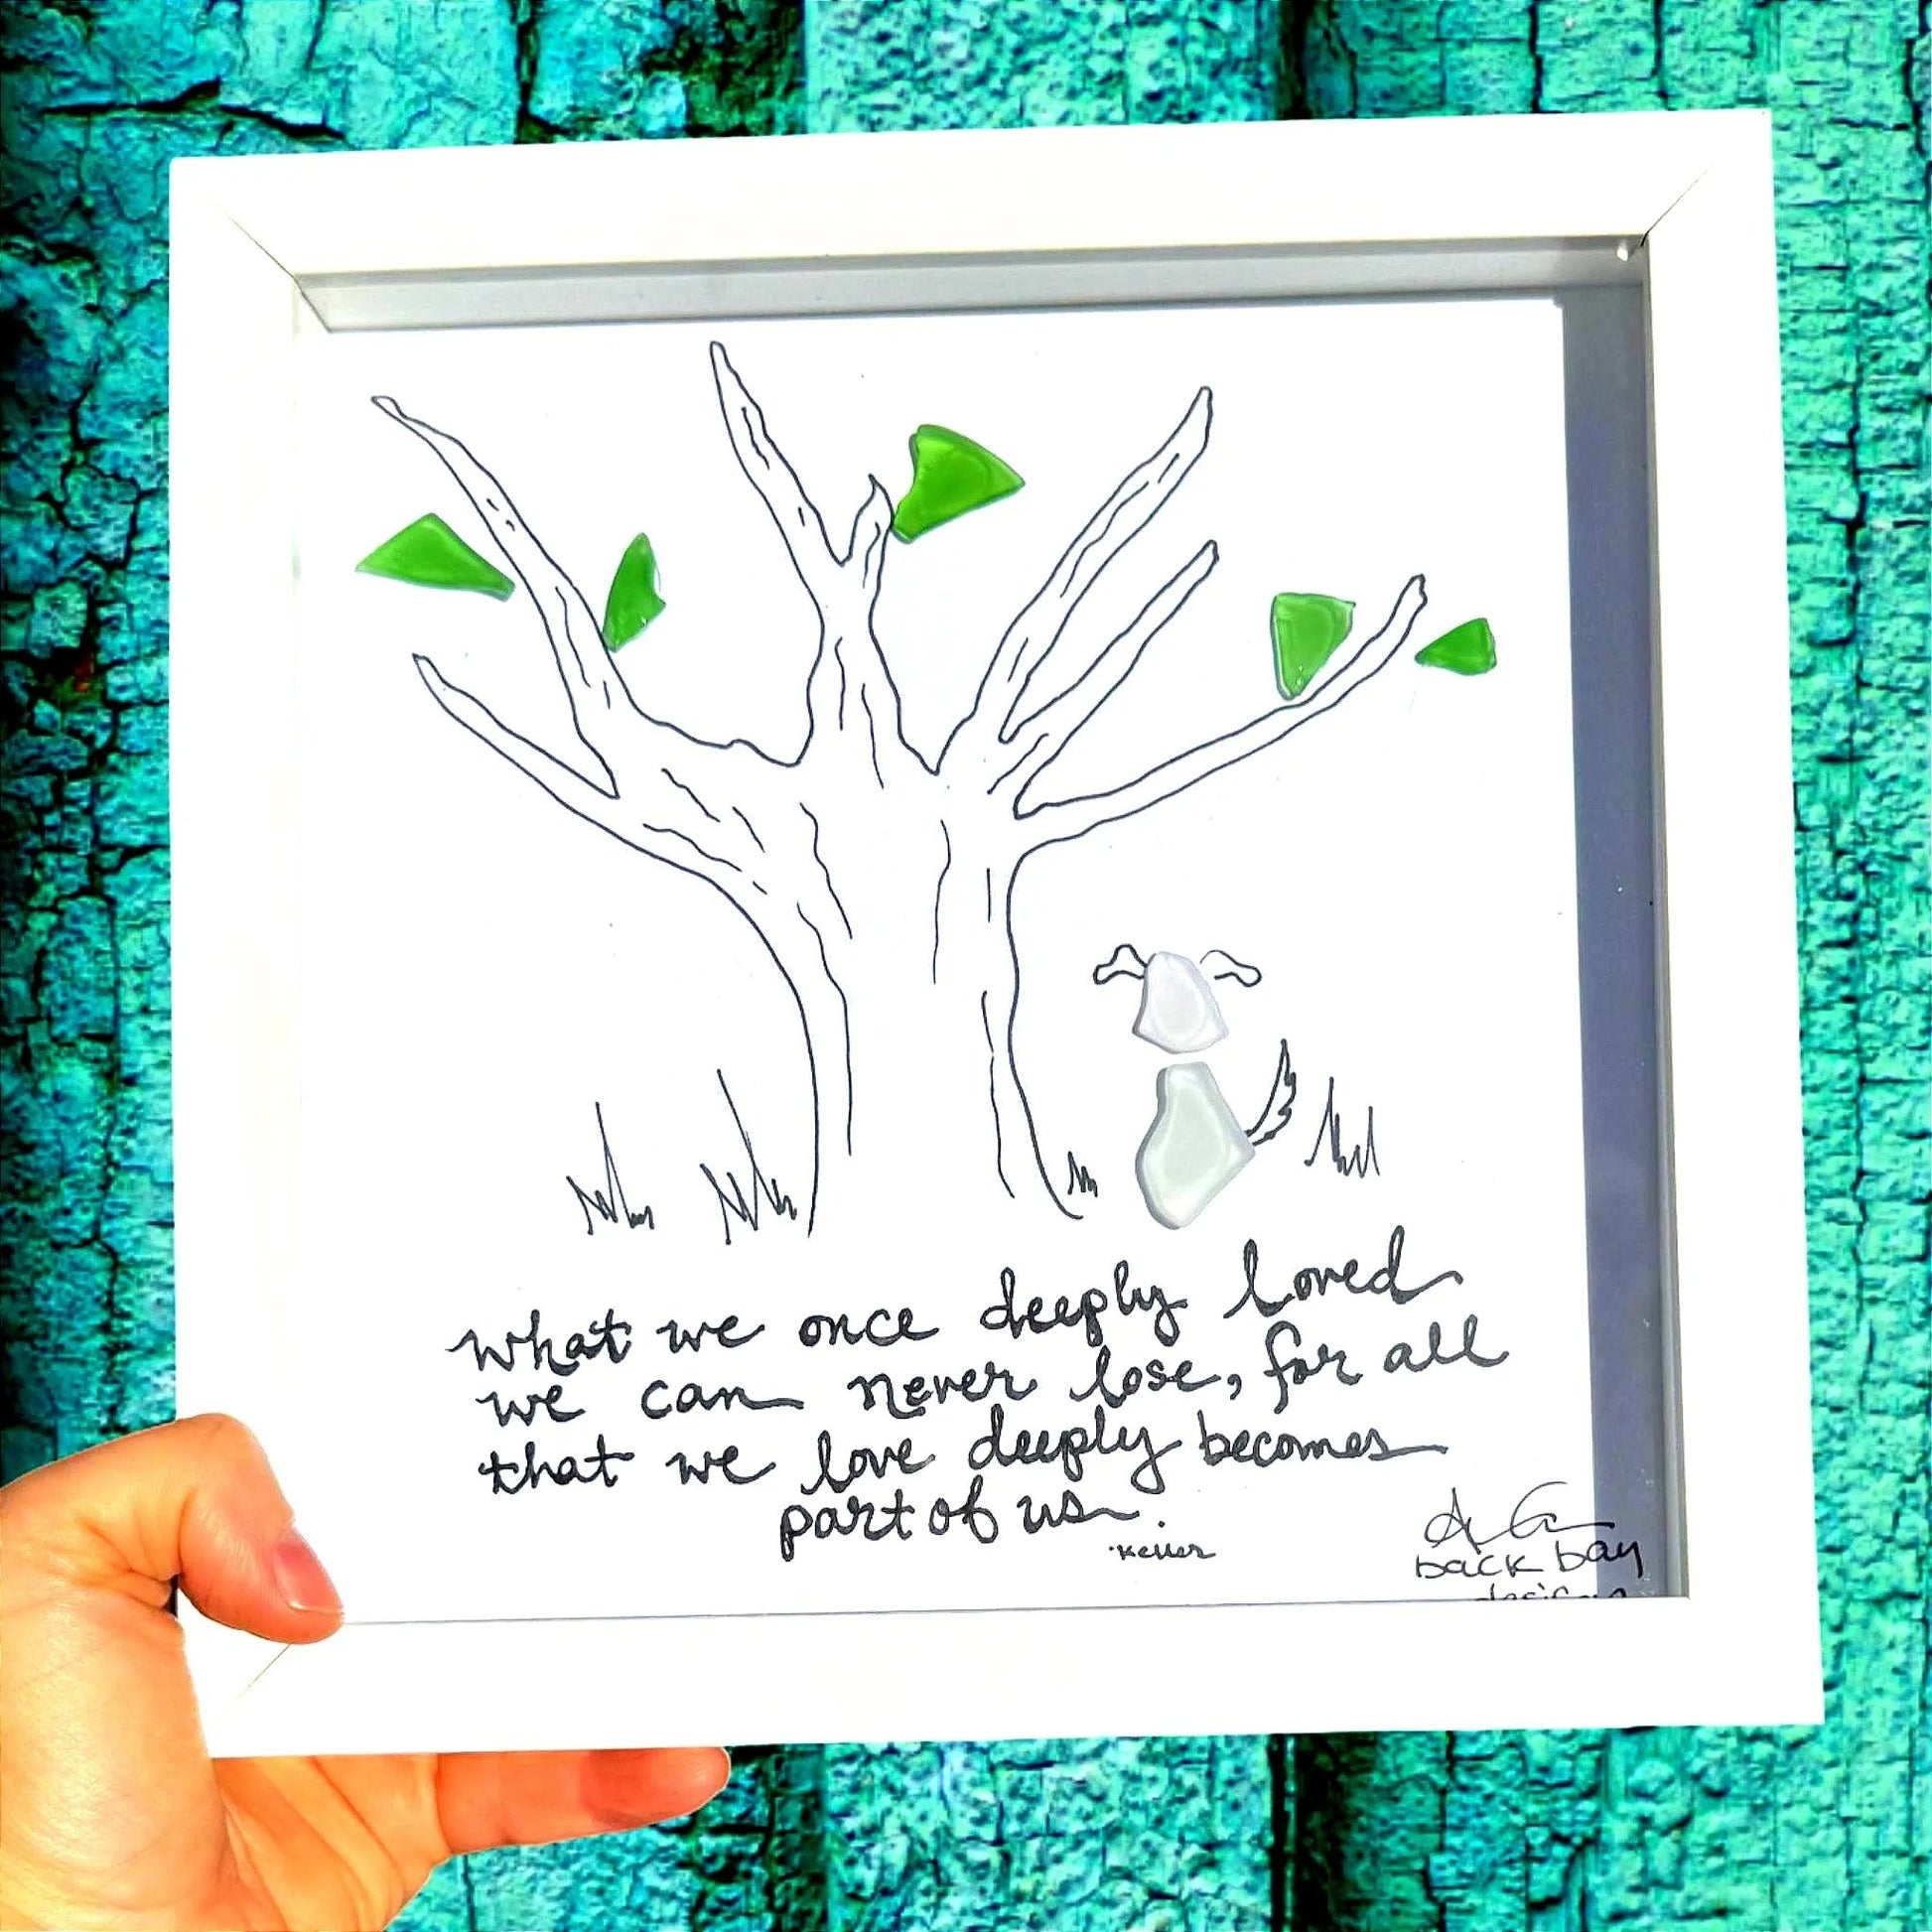 what we once deeply loved
we can never lose, for all
that we love deeply becomes
part of us.
·Keller
back bay